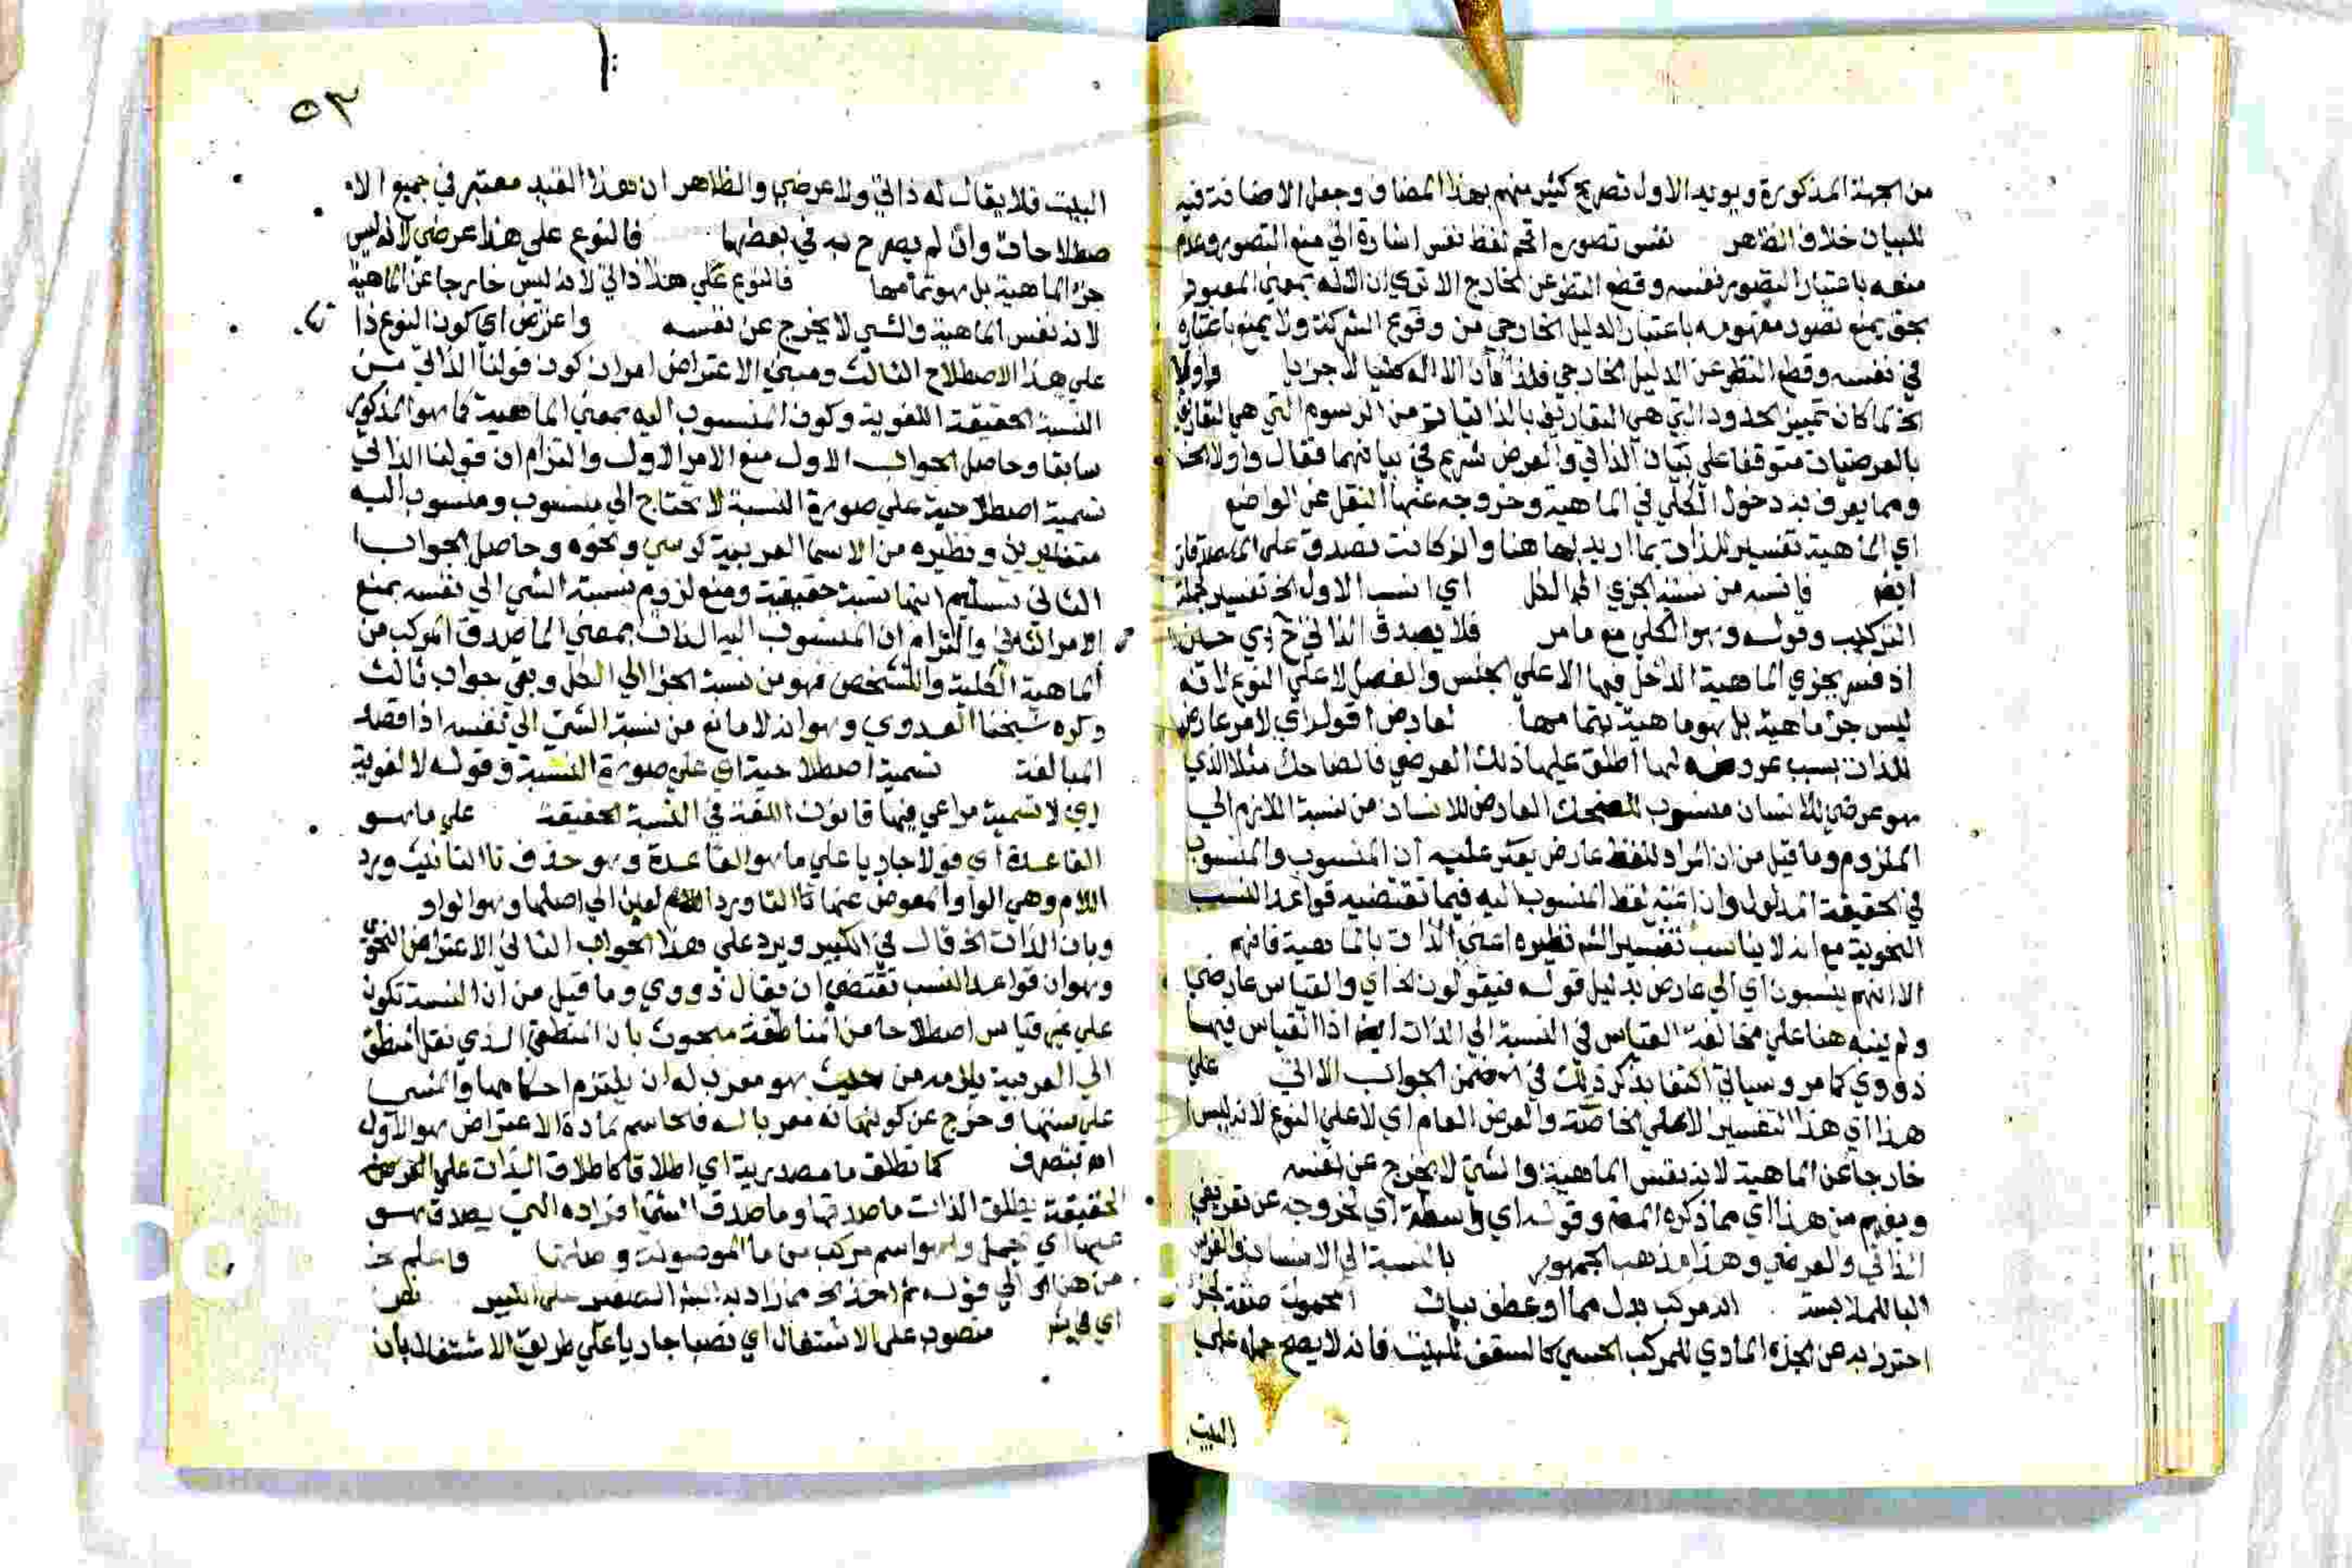 من الجهة المذكورة ويويد الاول تصريح كثير منهم بهذا المضاف وجعل الاضافة فيه
للبيان خلاف الظاهر نفس تصوره اقحم لفظ نفس اشارة الي منع التصور وعدم
منعه باعتبار التصور نفسه وقطع النظر عن الخارج الا تري ان الاله بمعني المعبود
بحق يمنع تصور مفهومه باعتبار الدليل الخارجي من وقوع الشركة ولا يمنع باعتباره
في نفسه وقطع النظر عن الدليل الخارجي فلذا كان الاله كليا لا جزيا واولا
الخ لما كان تمييز الحدود التي هي التعاريف بالذاتيات من الرسوم التي هي التعاريف
بالعرضيات متوقفا علي بيان الذاتي والعرضي شرع في بيانهما فقال واولا الخ
ومما يعرف به دخول الكلي في الماهية وخروجه عنها النقل عن الواضع
اي الماهية تفسير للذات بما اريد بها هنا وان كانت تصدق علي الماصدقات
ايضا فانسبه من نسبة الجزي الي الكل اي انسب الاول الخ تفسير لجملة
التركيب وقوله وهو الكلي مع ما مر فلا يصدق الذاتي ح اي حين
اذ فسر بجزي الماهية الداخل فيها الا علي الجنس والفصل لا علي النوع لانه
ليس جزء ماهية بل هو ماهية بتمامها لعارض اقول اي لامر عارض
للذات بسبب عروضه لها اطلق عليها ذلك العرضي فالضاحك مثلا الذي
هو عرضي للانسان منسوب للضحك العارض للانسان من نسبة اللازم الي
الملزوم وما قيل من ان المراد لفظ عارض يعكر عليه ان المنسوب والمنسوب
في الحقيقة المدلول وان اعتبر لفظ المنسوب اليه فيما تقتضيه قواعد النسب
النحوية مع انه لا يناسب تفسير الشم نظيره اعني الذات بالماهية فافهم
الا انهم ينسبون اي الي عارض بدليل قوله فيقولون الخ اي والقياس عارضي
ولم ينبه هنا علي مخالفة القياس في النسبة الي الذات ايضا اذ القياس فيها
ذووي كما مر وسياتي اكتفا بذكر ذلك في ضمن الجواب الاتي علي
هذا اي هذا التفسير الا علي الخاصة والعرض العام اي لا علي النوع لانه ليس
خارجا عن الماهية لانه نفس الماهية والشي لا يخرج عن نفسه
ويفهم من هذا اي مما ذكره المصم وقوله اي واسطة اي لخروجه عن تعريفي
الذاتي والعرضي وهذا مذهب الجمهور بالنسبة الي الانسان والفرس
البا للملابسة المركب بدل مما او عطف بيان المحمول صفة لجز
احترز به عن الجزء المادي للمركب الحسي كالسقف للبيت فانه لا يصح حمله علي
البيت
٥٣
البيت فلا يقال له ذاتي ولا عرضي والظاهر ان هذا القيد معتبر في جميع الا
صطلاحات وان لم يصرح به في بعضها فالنوع علي هذا عرضي لانه ليس
جزء الماهية بل هو تمامها فالنوع علي هذا ذاتي لانه ليس خارجا عن الماهية
لانه نفس الماهية والشي لا يخرج عن نفسه واعترض اي كون النوع ذا
علي هذا الاصطلاح الثالث ومبني الاعتراض امران كون قولنا الذاتي من
النسبة الحقيقة اللغوية وكون المنسوب اليه بمعني الماهية كما هو المذكور
سابقا وحاصل الجواب الاول منع الامر الاول والتزام ان قولنا الذاتي
تسمية اصطلاحية علي صورة النسبة لا يحتاج الي منسوب ومنسوب اليه
متغايرين ونظيره من الاسما العربية كرسي ونحوه وحاصل الجواب
الثاني تسليم انها نسبة حقيقة ومنع لزوم نسبة الشي الي نفسه بمنع
الامر الثاني والتزام ان المنسوب اليه الذات بمعني الماصدق المركب من
الماهية الكلية والتشخص فهو من نسبة الجزء الي الكل وبقي جواب ثالث
ذكره شيخنا العدوي وهو انه لا مانع من نسبة الشي الي نفسه اذا قصد
المبالغة تسمية اصطلاحية اي علي صورة النسبة وقوله لا لغوية
اي لا تسمية مراعي فيها قانون اللغة في النسبة الحقيقة علي ما هو
القاعدة اي قولا جاريا علي ما هو القاعدة وهو حذف تا التانيث ورد
اللام وهي الواو المعوض عنها تا التا ورد العين الي اصلها وهو الواو
وبان الذات الخ قال في الكبير ويرد علي هذا الجواب الثاني الاعتراض النحوي
وهو ان قواعد النسب تقتضي ان يقال ذووي وما قيل من ان النسبة تكون
علي غير قياس اصطلاحا من المناطقة مبحوث بان المنطقي الذي نقل المنطق
الي العربية يلزمه من حيث هو معرب له ان يلتزم احكامها والمشي
علي سننها وخرج عن كونها نه معربا له فالحاسم لمادة الاعتراض هو الاول
اه بتصرف كما تطلق ما مصدرية اي اطلاقا كاطلاق الذات علي
الحقيقة يطلق الذات ماصدقها وماصدق الشي افراده التي يصدق هو
عليها اي يحمل وهو اسم مركب من ما الموصولة وصلتها واعلم الخ
من هنا الي قوله ثم اخذ الخ مما زاد به الشر الصغير علي الكبير نص
اي في منصوب علي الاشتغال اي نصبا جاريا علي طريق الاشتغال بان